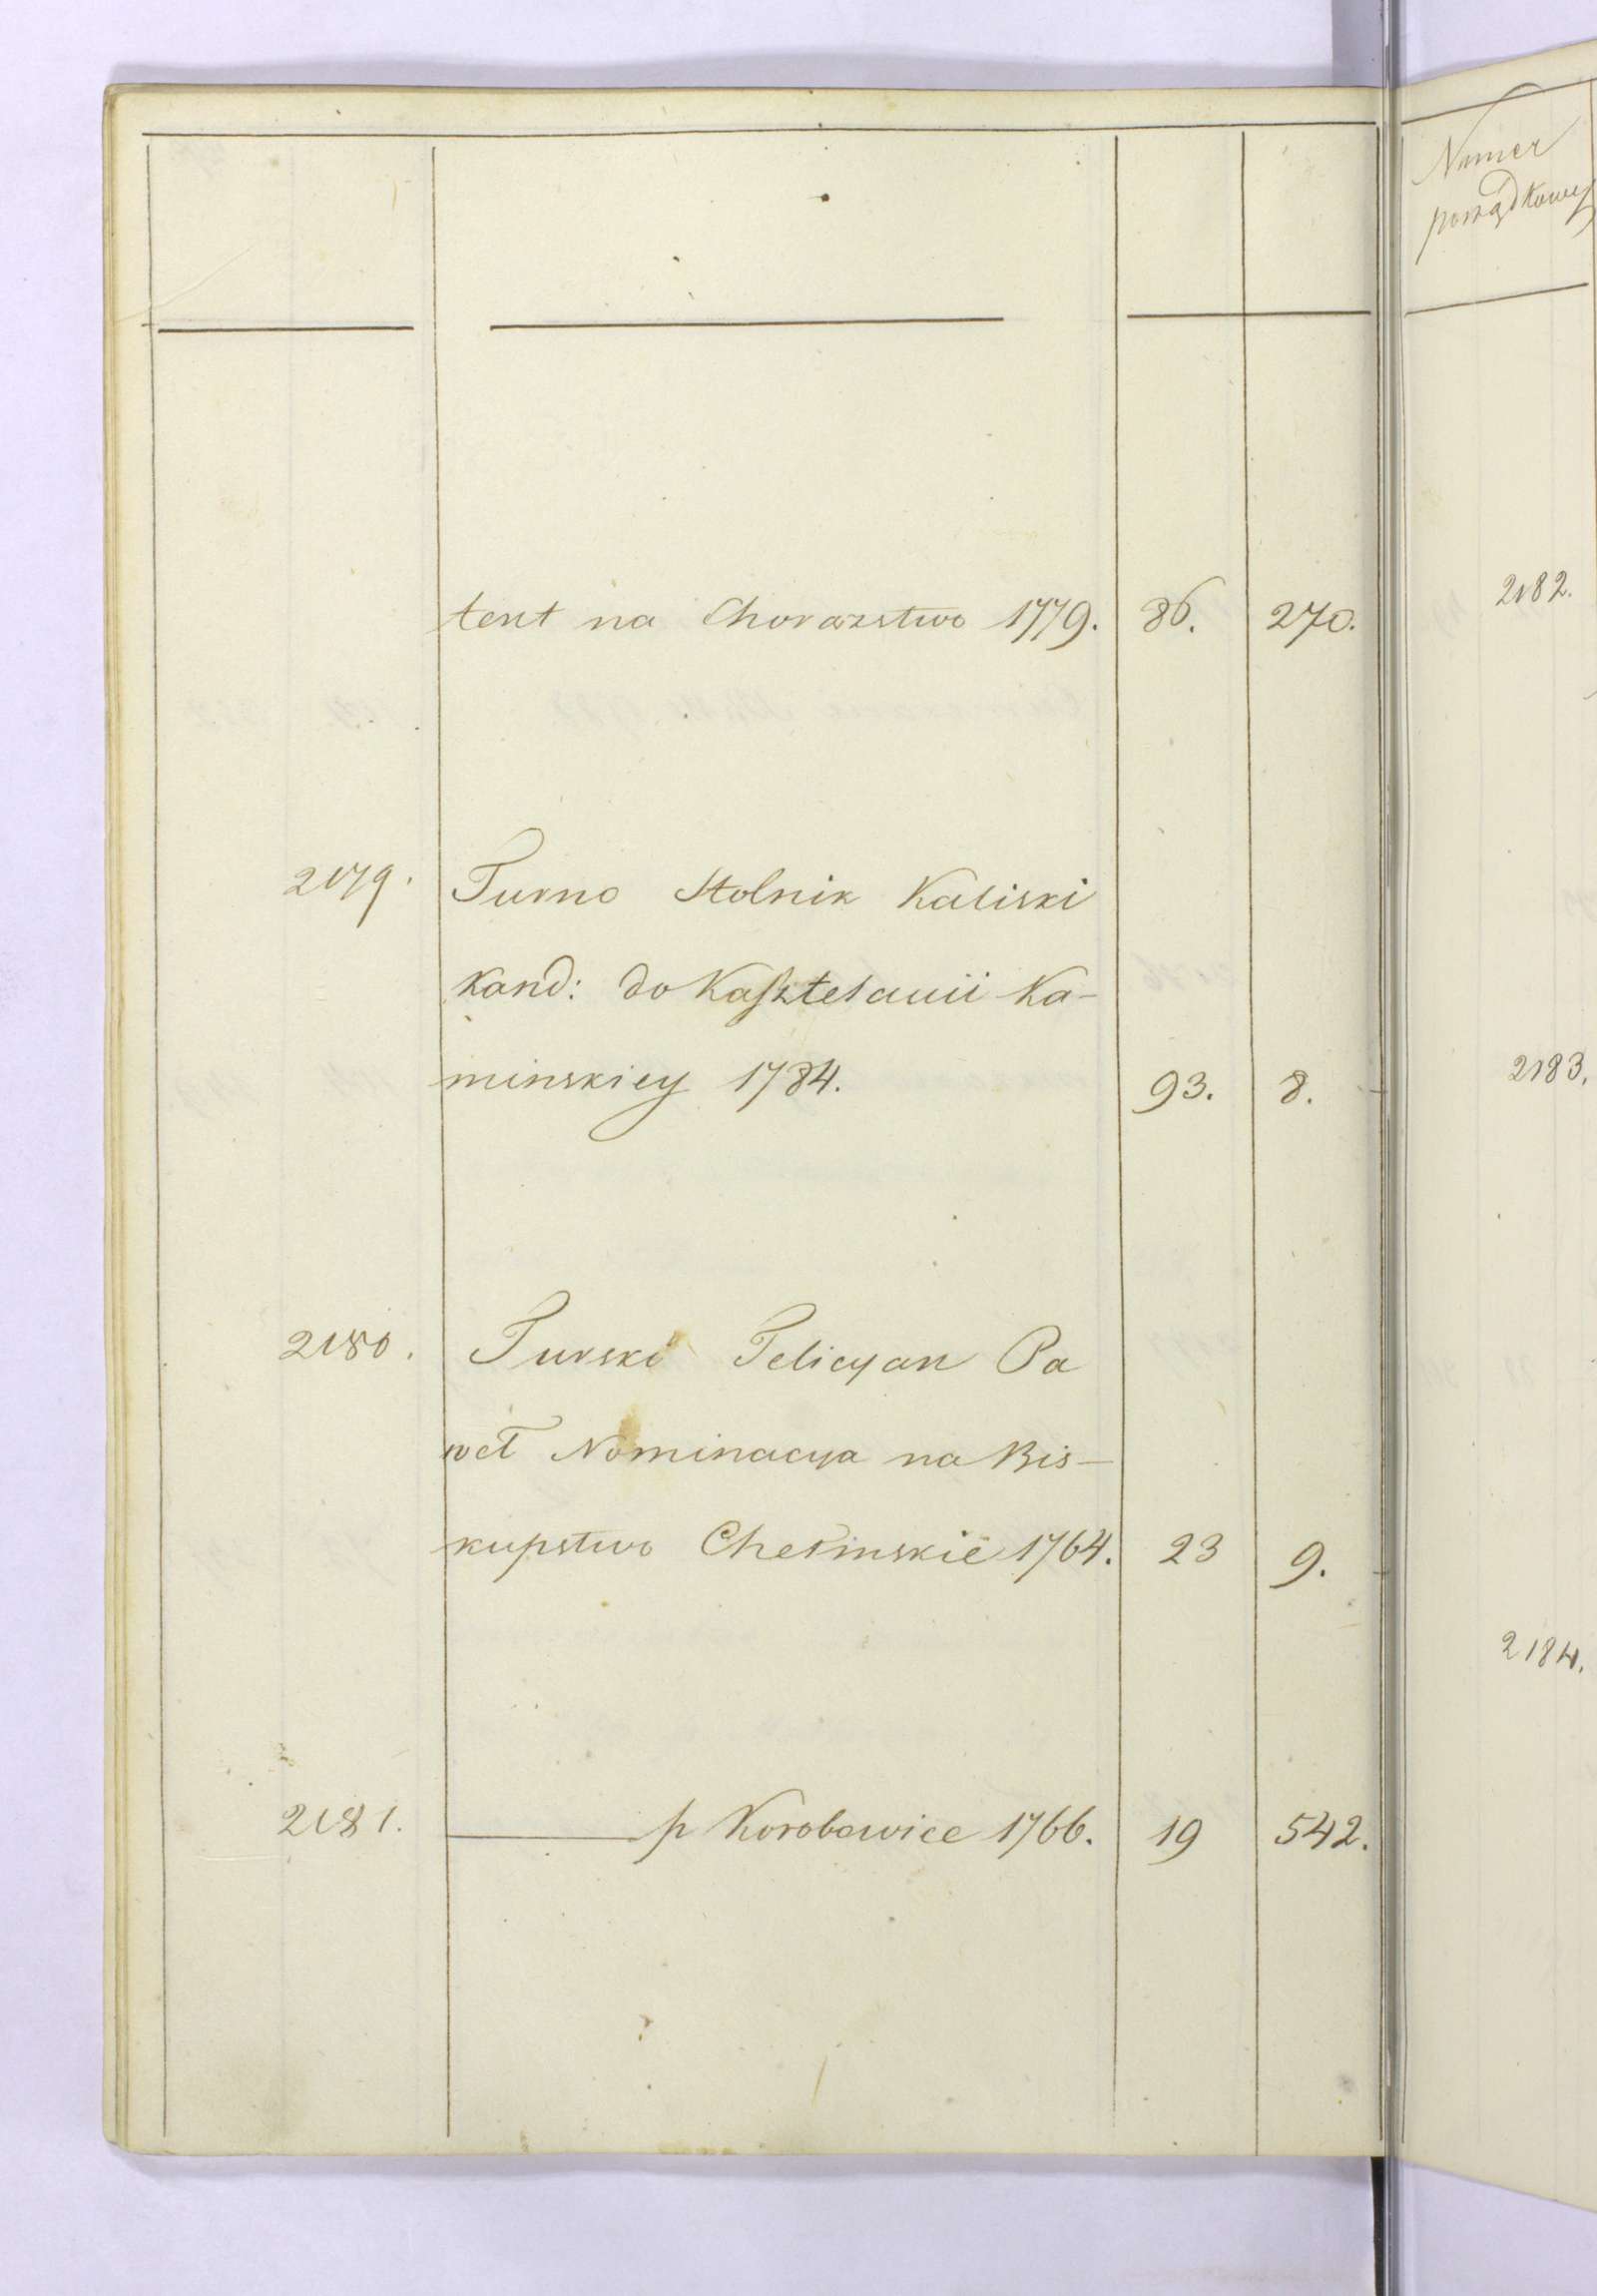 tent na Chorazstwo 1779. 86. 270.
2179. Turno Stolnik Kaliski
Kand: do Kasztelanii Ka-
minskiey 1784. 93. 8.
2180. Turski Felicyan Pa
weł Nominacya na Bis-
kupstwo Chełmskie 1764. 23 9.
2181. ——— p Korobowice 1766. 19 542.
Numer
porządkowy
2182.
2183.
2184.